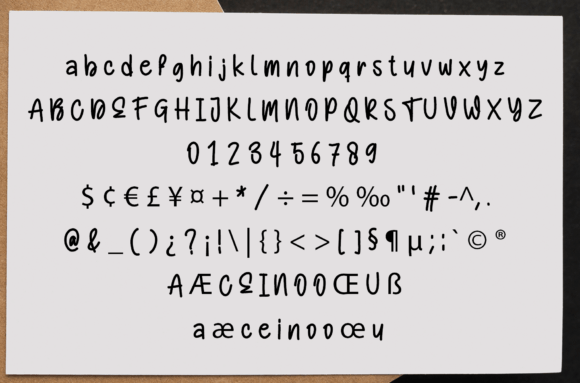 a b c d e f g h i j k l m n o p q r s t u v w x y z
A B C D E F G H I J K L M N O P Q R S T U V W X Y Z
0 1 2 3 4 5 6 7 8 9
$ ¢ € £ ¥ ¤ + * / ÷ = % ‰ " ' # - ^ , .
@ & _ ( ) ¿ ? ¡ ! \ | { } < > [ ] § ¶ µ ; : ` © ®
A Æ C E I N O O Œ U ß
a æ c e i n o o œ u